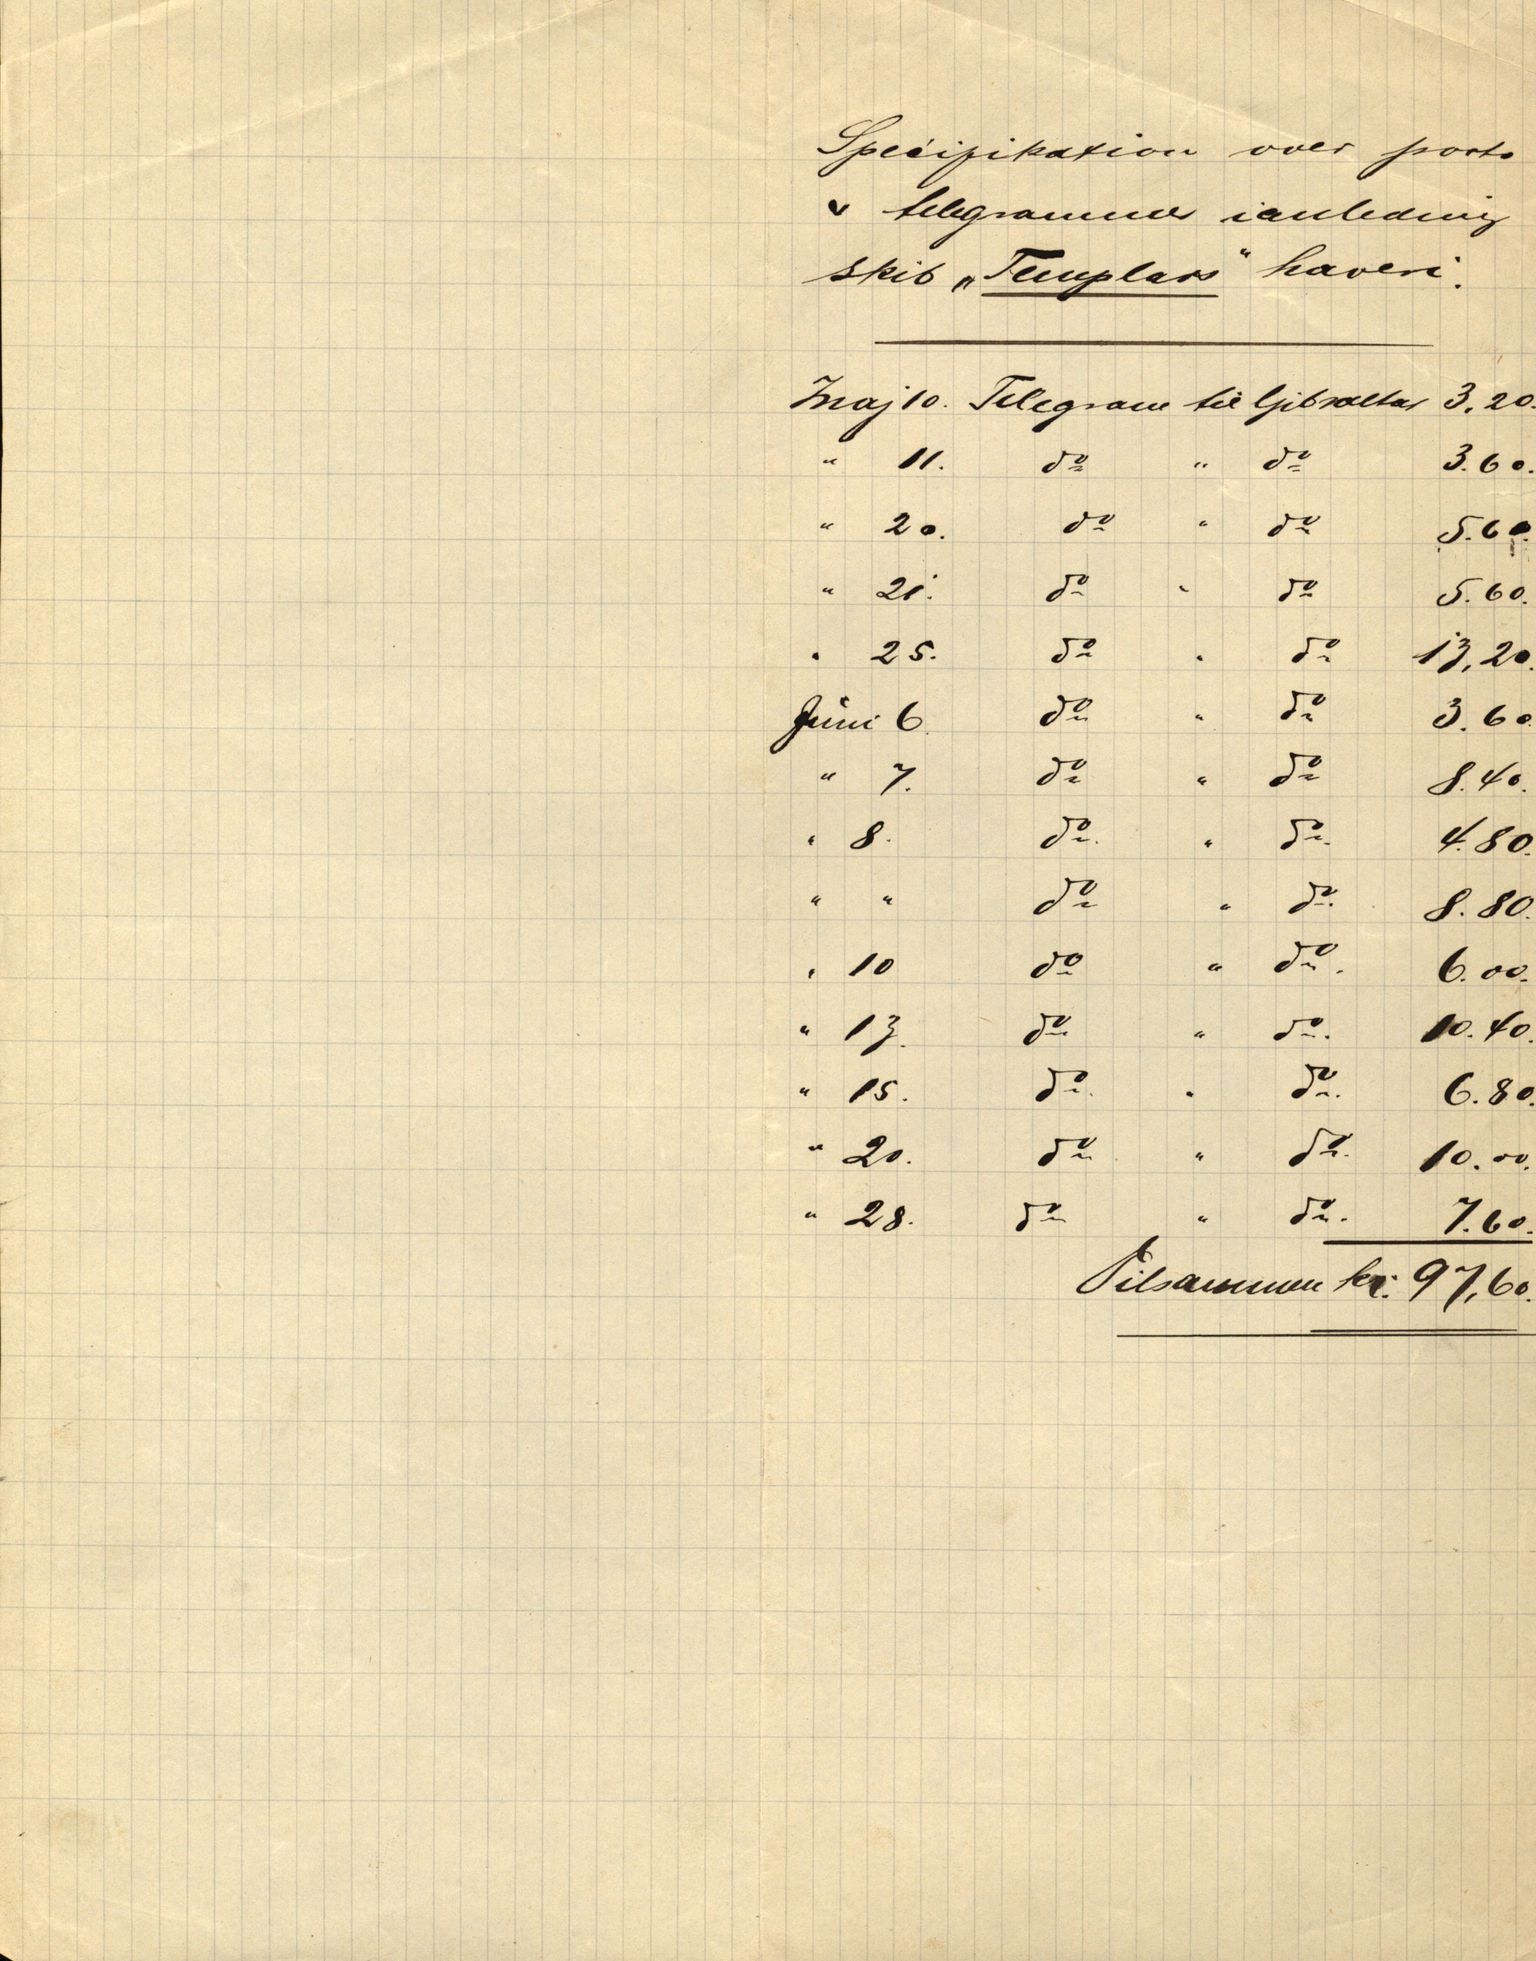 Specifikation over porto
& telegrammer ianledning
skib „Templars" haveri.
Maj 10. Telegram til Gibraltar 3,20.
" 11. do " do 3.60.
" 20. do " do 5.60.
" 21. do " do 5.60.
" 25. do " do 13,20.
Juni 6. do " do 3.60.
" 7. do " do 8.40.
" 8. do. " do. 4.80.
" " do " do. 8.80.
" 10 do " do. 6.00.
" 13. do " do. 10.40.
" 15. do. " do. 6.80.
" 20. do " do. 10.00.
" 28. do " do. 7.60.
Tilsammen kr. 97,60.